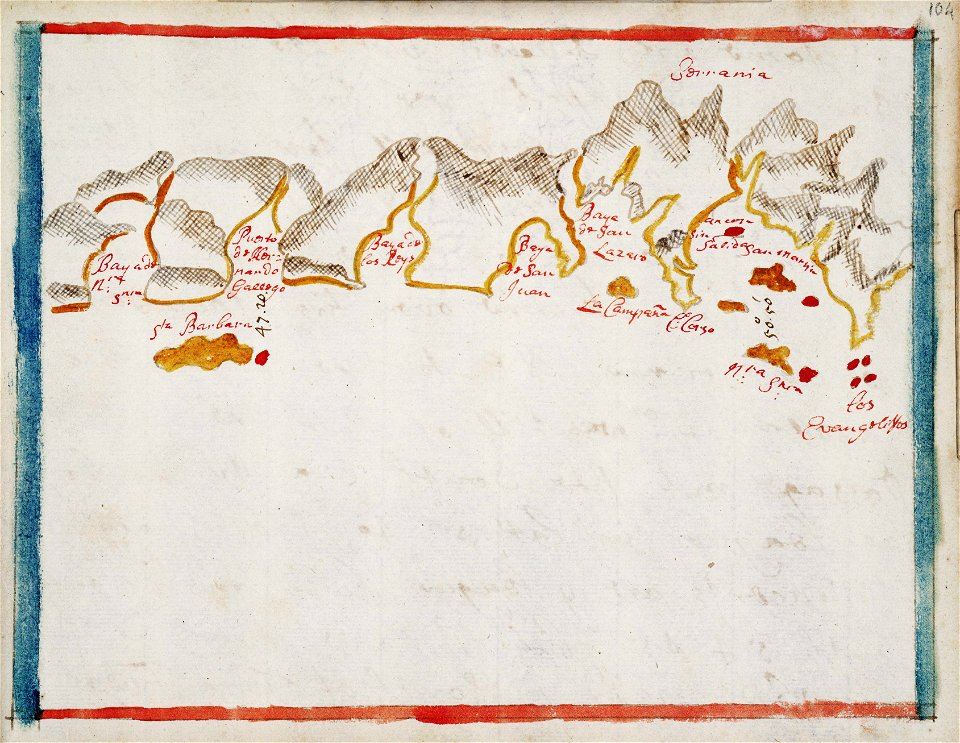 104
Serrania
Baya de
N.ra
S.ra
Puerto
de Her-
nando
Gallego
47.20
Baya de
los Reys
Baya
de San
Juan
Baya
de San
Lazaro
ancon
sin
Salida
San Martin
sta Barbara
La Campaña
50.50
N.ra Sra
los
Evangelistos